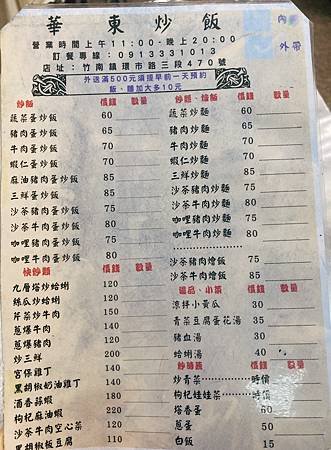 華東炒飯
內
外帶
營業時間上午11:00-晚上20:00
訂餐專線:0913331013
店址:竹南鎮環市路三段470號
外送滿500元須提早前一天預約
飯、麵加大多10元
炒飯 價錢 數量
蔬菜蛋炒飯 60
豬肉蛋炒飯 65
牛肉蛋炒飯 70
蝦仁蛋炒飯 70
麻油豬肉蛋炒飯 85
三鮮蛋炒飯 85
沙茶豬肉蛋炒飯 75
沙茶牛肉蛋炒飯 80
咖哩豬肉蛋炒飯 75
咖哩牛肉蛋炒飯 80
快炒類 價錢 數量
九層塔炒蛤蜊 120
絲瓜炒蛤蜊 120
芹菜炒牛肉 120
蔥爆牛肉 120
蔥爆豬肉 120
炒三鮮 150
宮保雞丁 140
黑胡椒奶油雞丁 140
酒香蒜蝦 200
枸杞麻油蝦 200
沙茶牛肉空心菜 150
黑胡椒板豆腐 110
炒麵、燴麵 價錢 數量
蔬菜炒麵 60
豬肉炒麵 65
牛肉炒麵 70
蝦仁炒麵 70
三鮮炒麵 85
沙茶豬肉炒麵 75
沙茶牛肉炒麵 80
咖哩豬肉炒麵 75
咖哩牛肉炒麵 80
沙茶豬肉燴飯 75
沙茶牛肉燴飯 80
湯品、小菜 價錢 數量
涼拌小黃瓜 30
青菜豆腐蛋花湯 30
豬血湯 30
蛤蜊湯 40
價錢 數量
炒青菜………… 時價
枸杞娃娃菜…… 時價
塔香蛋 60
蔥蛋 50
白飯 15